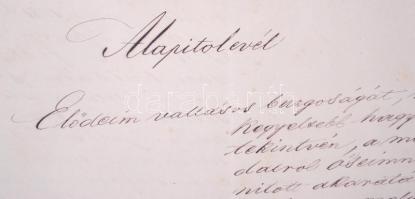 Alapitolevél
Elődeim vallásos buzgoságát,
kegyeltebb hagy
tekintvén, a m
datrol őseimn
nilott akarató